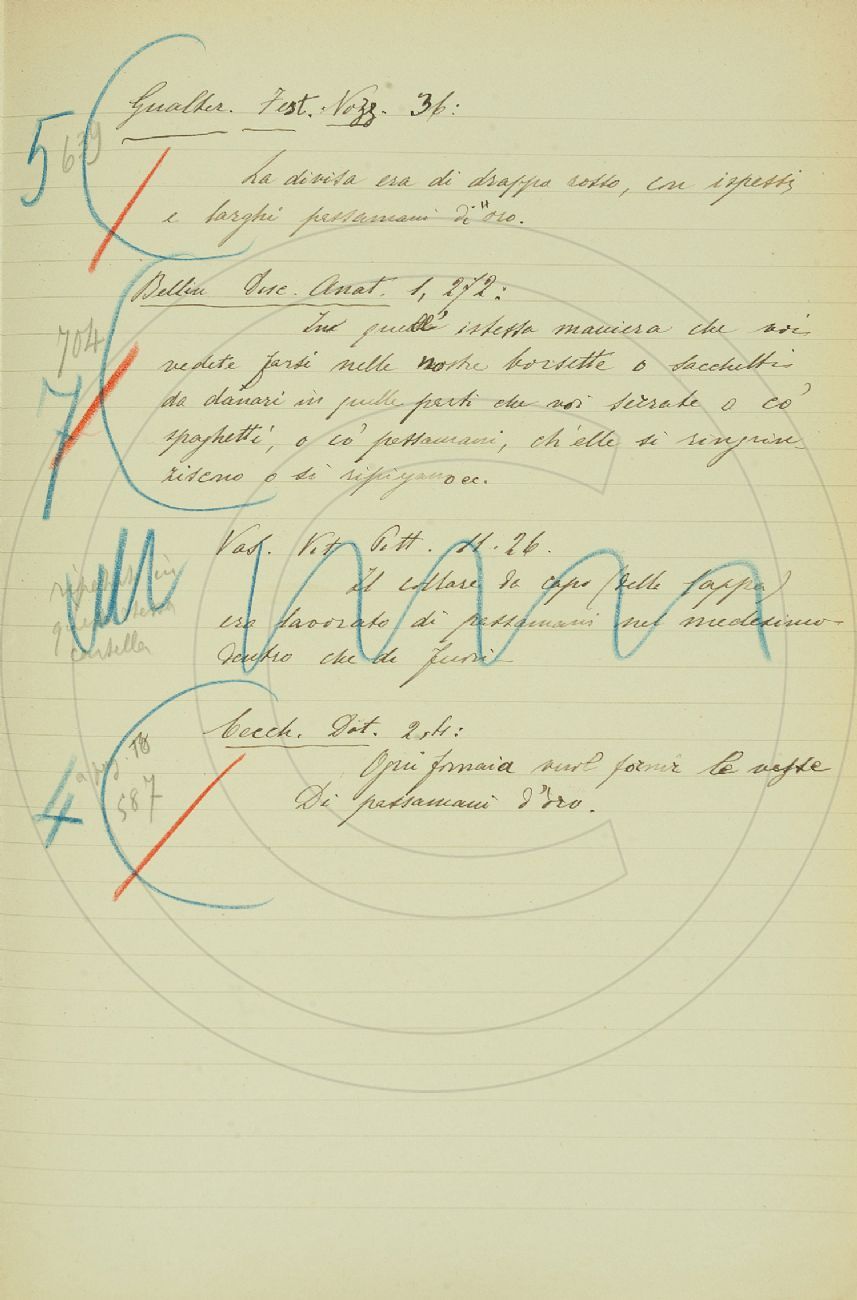 Gualter. Fest. Nozz. 36:
5 639
La divisa era di drappo rosso, con ispessi
e larghi passamani d'oro.
Bellin Disc. Anat. 1, 272:
In quell' istessa maniera che voi
704
vedete farsi nelle nostre borsette o sacchetti
7
da danari in quelle parti che voi serrate o co'
spaghetti, o co' passamani, ch'elle si ringrin
ziscono o si ripiegano ec.
Vas. Vit. Pitt. 11. 26.
Il collare da capo (delle cappe)
ripetuto in
era lavorato di passamani nel medesimo
questa stessa
dentro che di fuori
cartella
Cecch. Dot.
Ogni fornaia vuol fornir le veste
4 587
Di passamani d'oro.